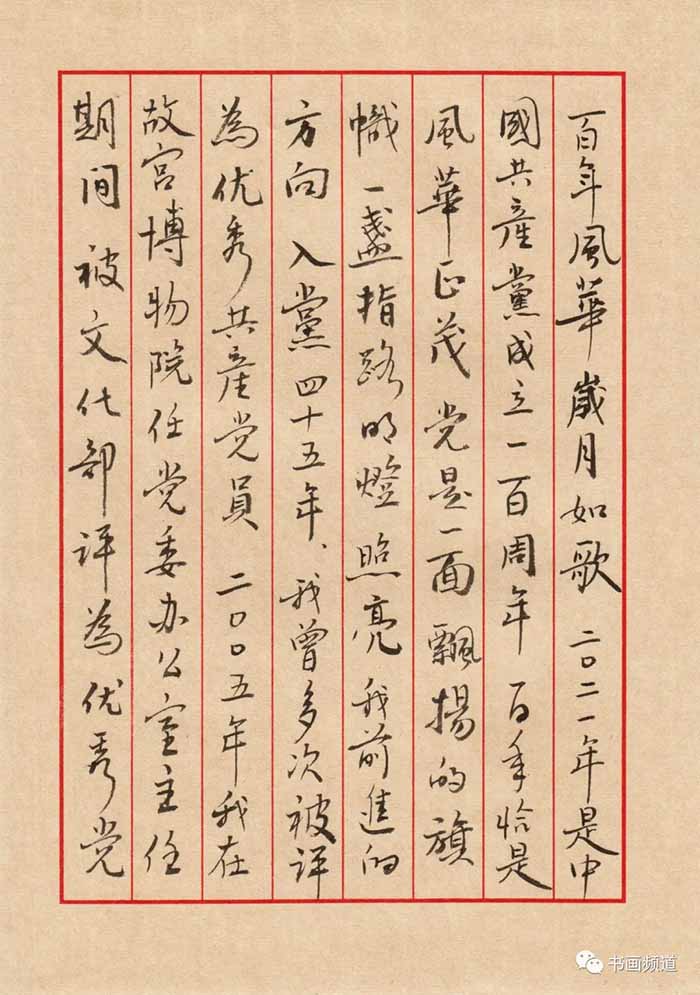 百年風華 歲月如歌 二〇二一年是中
國共産黨成立一百周年 百年恰是
風華正茂 党是一面飄揚的旗
幟 一盞指路明燈 照亮我前進的
方向 入黨四十五年、我曾多次被评
為优秀共産党員 二〇〇五年我在
故宫博物院任党委办公室主任
期间被文化部评為优秀党
书画频道